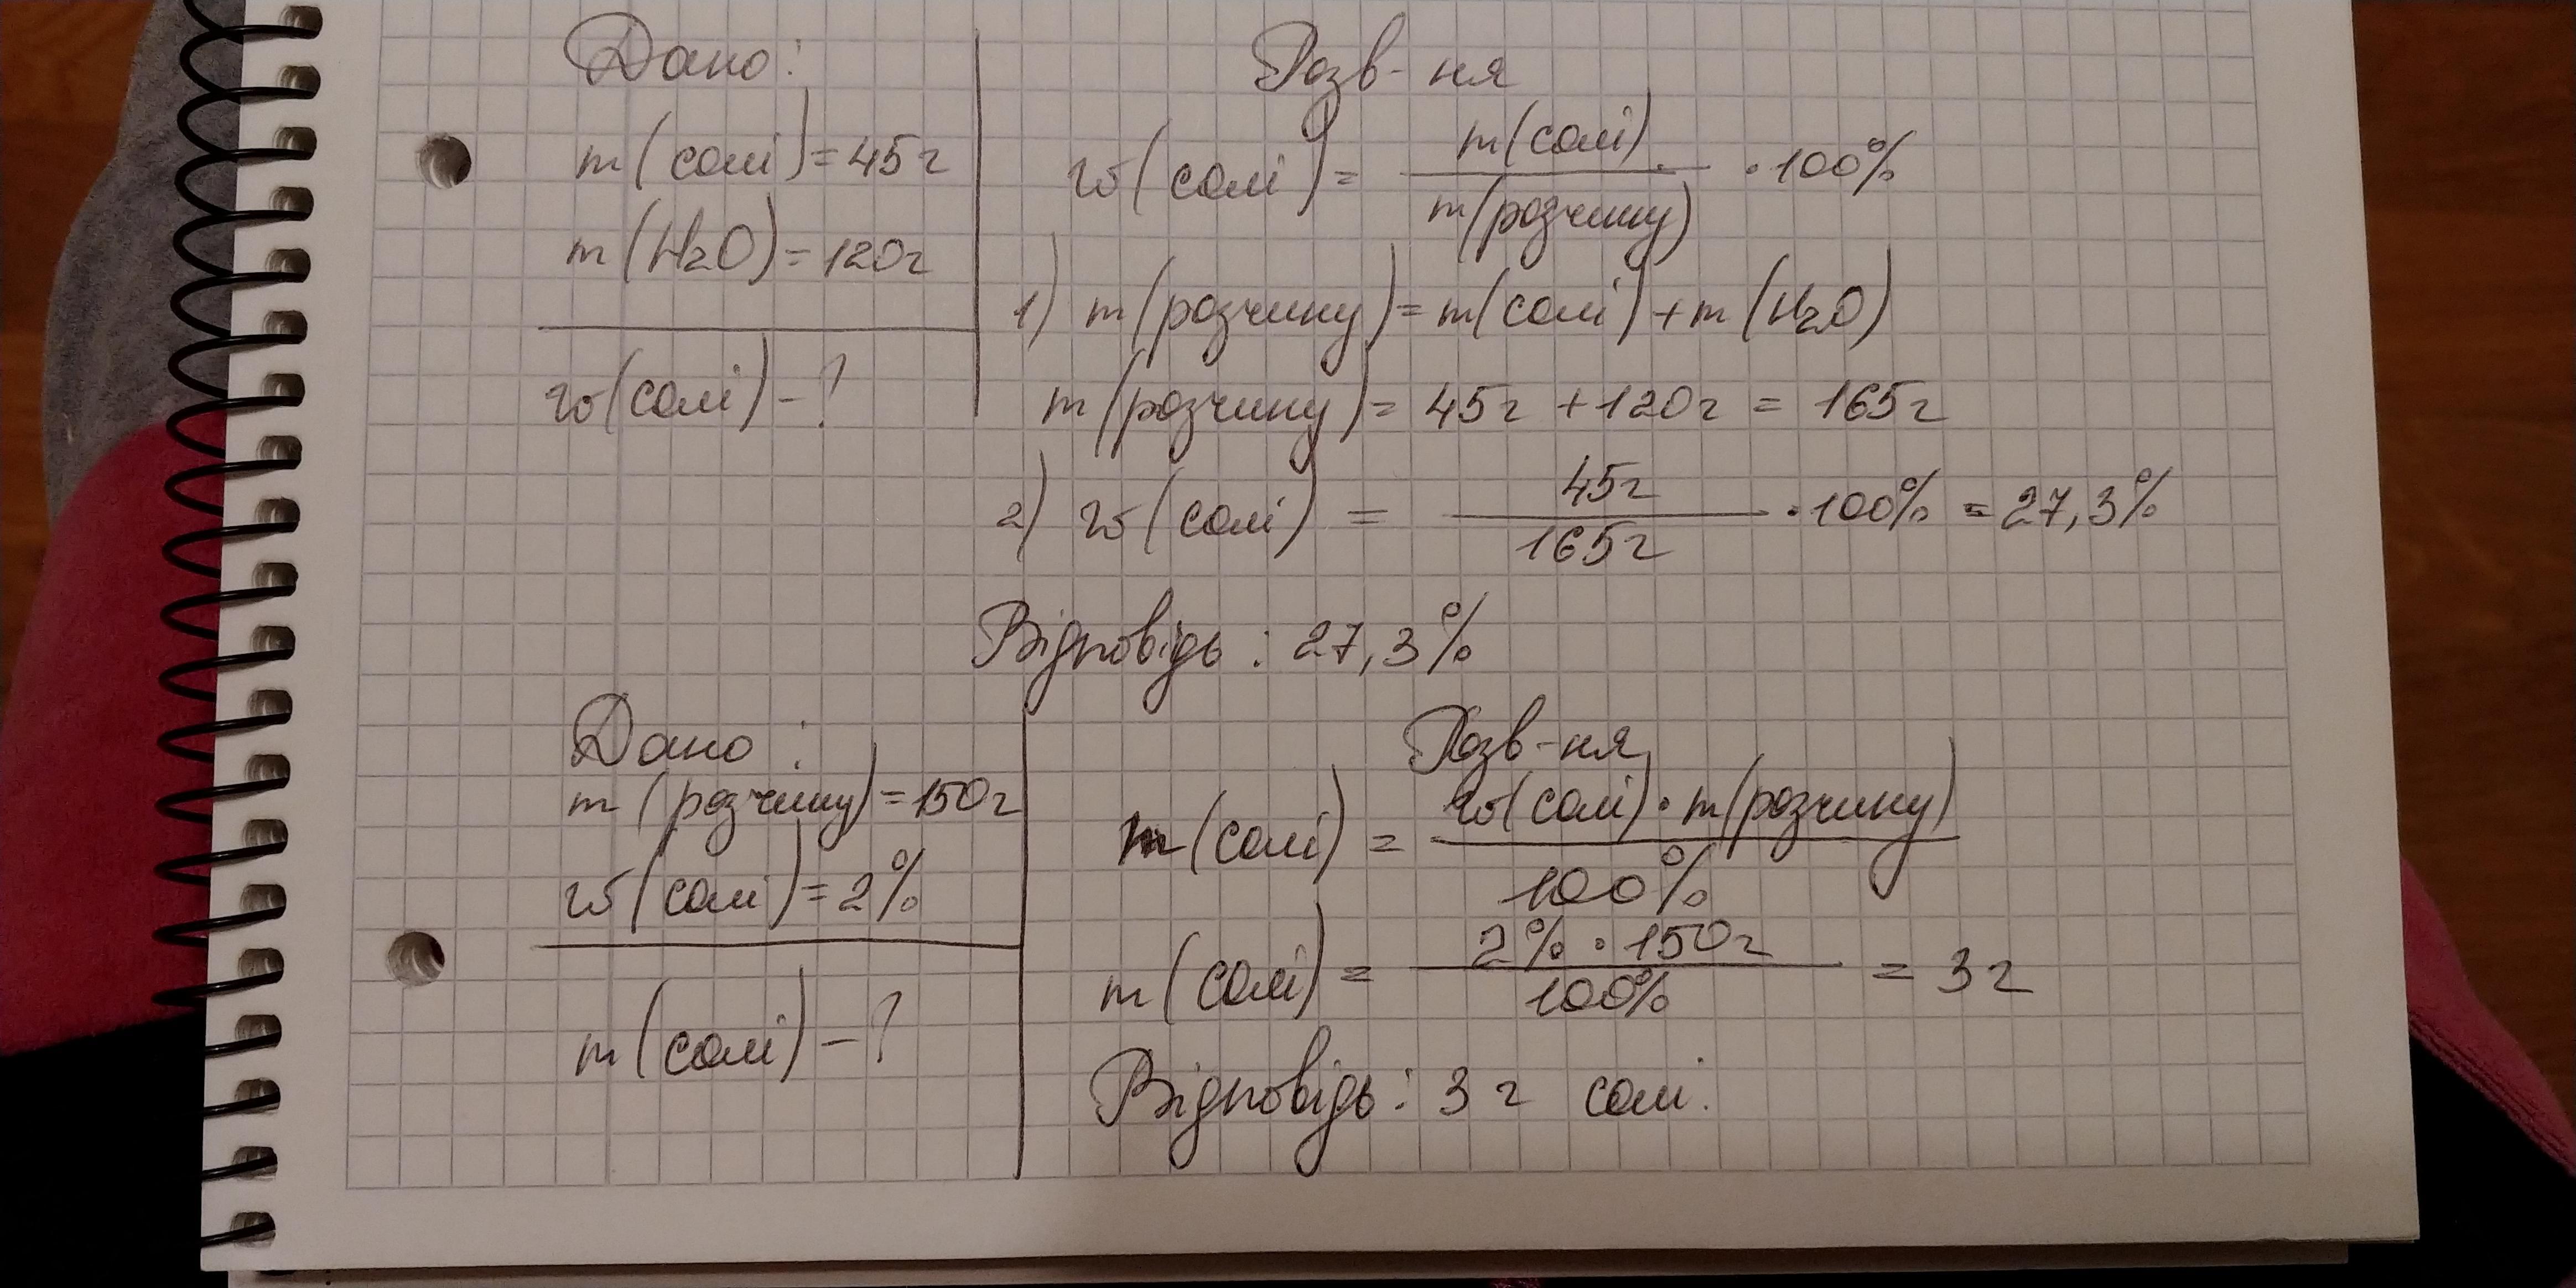 Дано:
m(солі)=45г
m(H₂O)=120г
w(солі)-?
Розв-ня
w(солі)= m(солі)/m(розчину) ·100%
1) m(розчину)=m(солі)+m(H₂O)
m(розчину)= 45г +120г = 165г
2) w(солі) = 45г/165г ·100% =27,3%
Відповідь: 27,3%
Дано:
m(розчину)=150г
w(солі)=2%
m(солі)-?
Розв-ня
m(солі) = w(солі)·m(розчину)/100%
m(солі) = 2%·150г/100% = 3г
Відповідь: 3г солі.